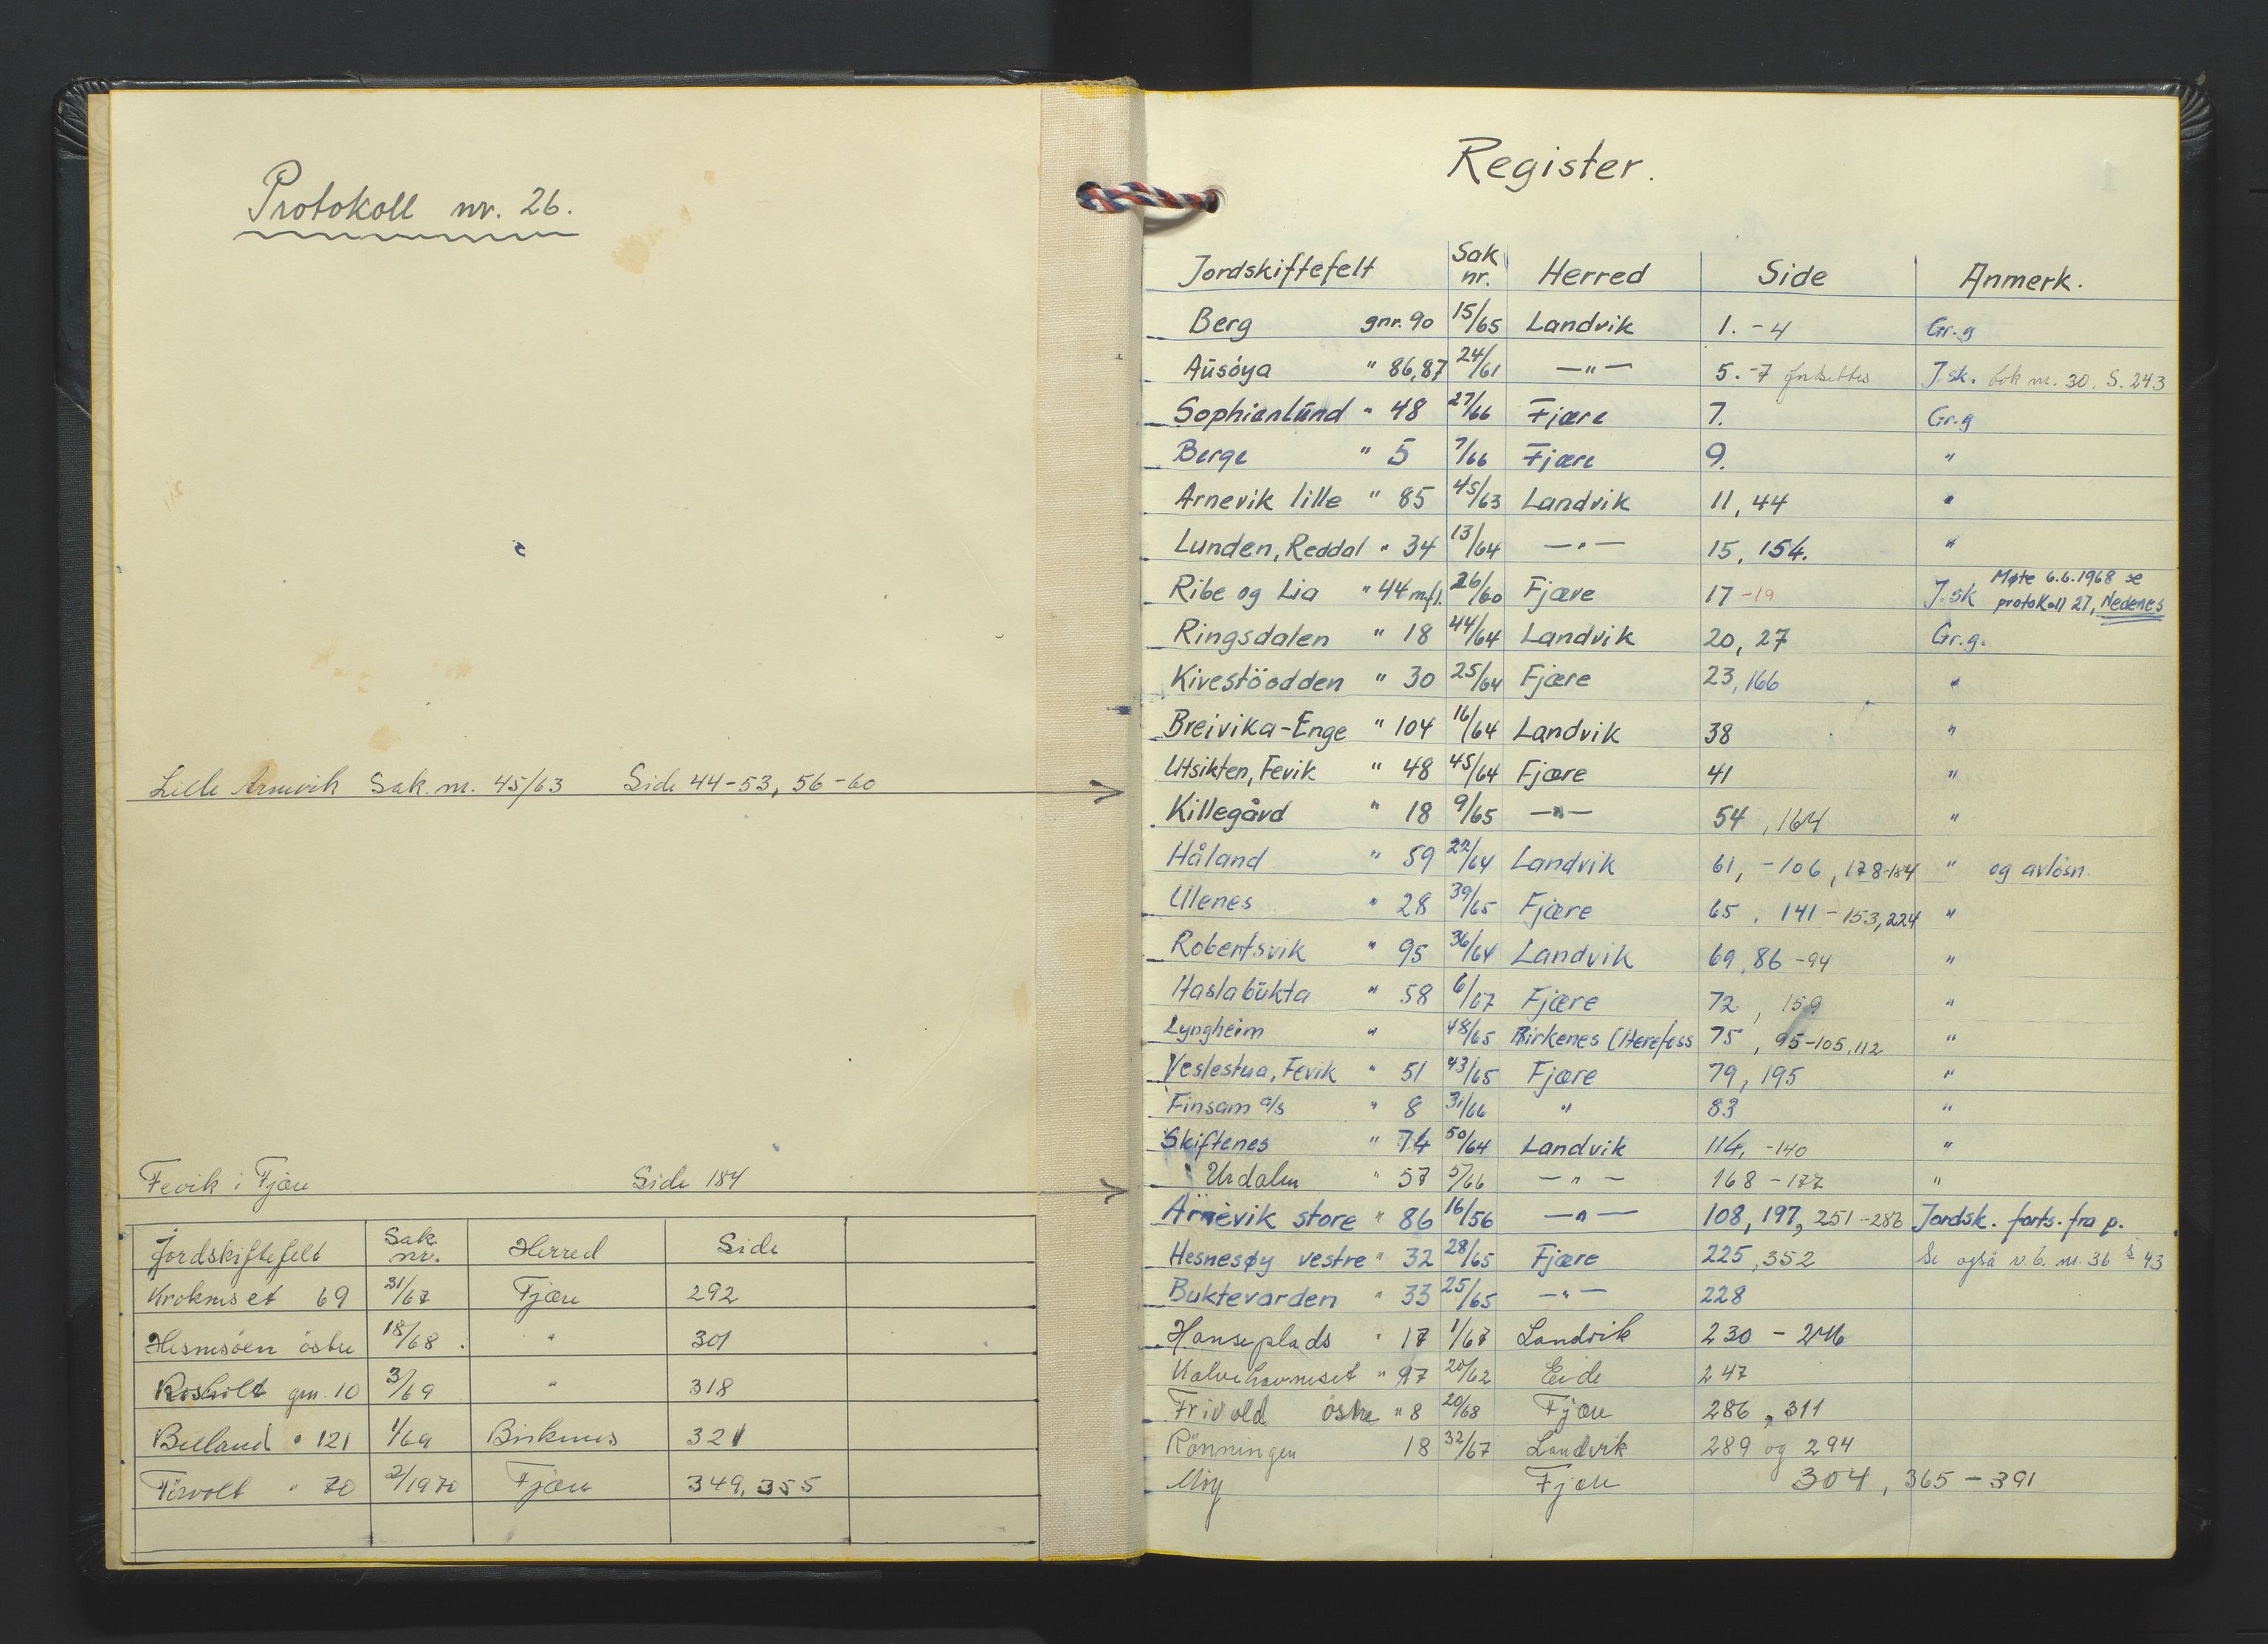 Protokoll nr. 26.
Lille Arnevik Sak. nr. 45/63 Side 44-53, 56-60
Fevik i Fjære Side 184
Jordskiftefelt Sak nr. Herred Side
Kroknes et 69 31/67 Fjære 292
Hesnesöen östre 18/68 " 301
Rosholt gnr. 10 3/69 " 318
Beeland " 121 1/69 Birkenes 321
" 70 2/1970 Fjære 349, 355
Register.
Jordskiftefelt Sak nr. Herred Side Anmerk.
Berg gnr. 90 15/65 Landvik 1. - 4 Gr.g
Aŭsöya " 86,87 24/61 —"— 5. -7 fortsettes J.sk. bok nr. 30. S. 243
Sophienlŭnd " 48 27/66 Fjære 7. Gr.g
Berge " 5 7/66 Fjære 9. "
Arnevik lille " 85 45/63 Landvik 11, 44 "
Lunden, Reddal " 34 13/64 —"— 15, 154. "
Ribe og Lia " 44 m.fl. 26/60 Fjære 17 -19 J.sk Møte 6.6.1968 se protokoll 27, Nedenes
Ringsdalen " 18 44/64 Landvik 20, 27 Gr.g.
Kivestöodden " 30 25/64 Fjære 23, 166 "
Breivika-Enge " 104 16/64 Landvik 38 "
Utsikten, Fevik " 48 45/64 Fjære 41 "
Killegård " 18 9/65 —"— 54, 164 "
Håland " 59 22/64 Landvik 61, -106, 178-184 " og avlösn.
Ulenes " 28 39/65 Fjære 65, 141 - 153, 224 "
Robertsvik " 95 36/64 Landvik 69, 86 -94 "
Haslabŭkta " 58 6/67 Fjære 72, 159 "
Lyngheim " 48/65 Birkenes (Herefoss 75, 95-105, 112 "
Veslestua, Fevik " 51 43/65 Fjære 79, 195 "
Finsam a/s " 8 31/66 " 83 "
Skiftenes " 74 50/64 Landvik 114, -140 "
Urdalen " 57 5/66 —"— 168 - 177 "
Arnevik store " 86 16/56 —"— 108, 197, 251 -286 Jordsk. forts. fra p.
Hesnesøy vestre " 32 28/65 Fjære 225, 352 Se også v.b. nr. 36 s 43
Buktevarden " 33 25/65 —"— 228
Hanseplads " 17 1/67 Landvik 230 - 246
Kalvehavneset " 97 20/62 Eide 247
Frivold östre " 8 20/68 Fjære 286, 311
Rönningen 18 32/67 Landvik 289 og 294
Moy Fjære 304, 365 - 391